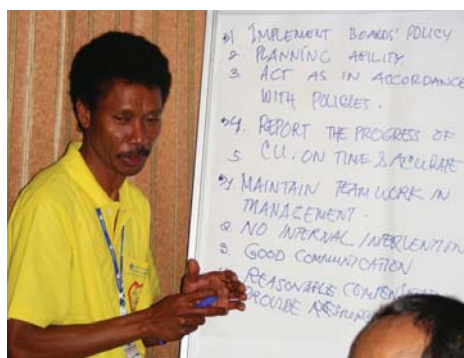 1 IMPLEMENT BOARDS' POLICY
2. PLANNING ABILITY.
3. ACT AS IN ACCORDANCE
WITH POLICIES.
4. REPORT THE PROGRESS OF
5. CU. ON TIME & ACCURATE
1 MAINTAIN TEAM WORK IN
MANAGEMENT.
2. NO INTERNAL INTERVENTION
3. GOOD COMMUNICATION
REASONABLE
PROVIDE